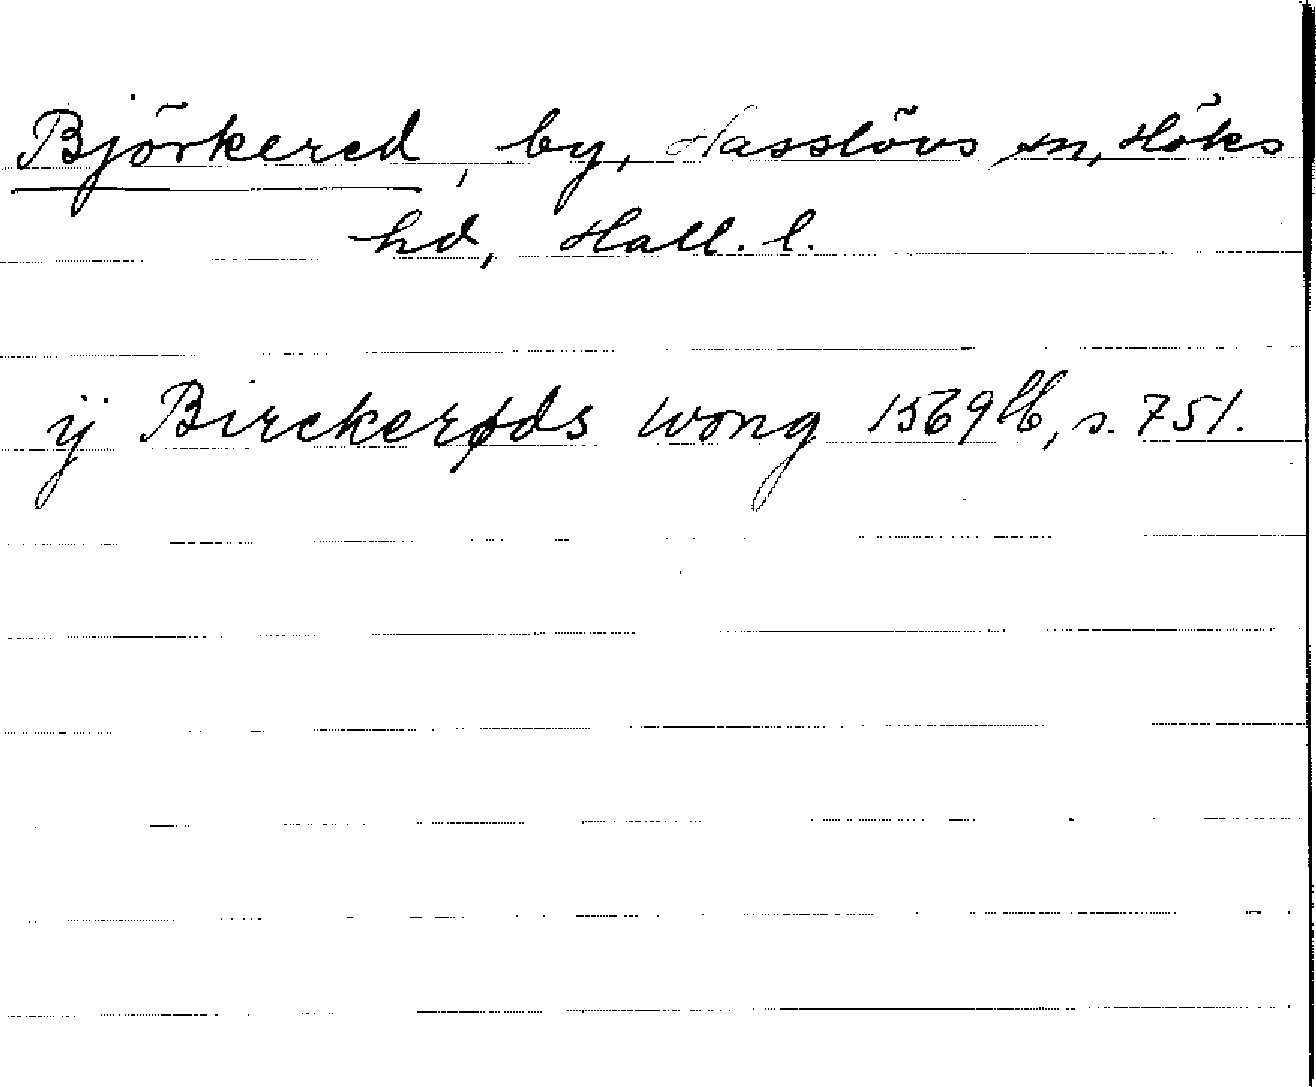 Björkered, by, Hasslövs sn, Höks
hd, Hall. l.
ÿ Birckerøds wong 1569 lb, s. 751.